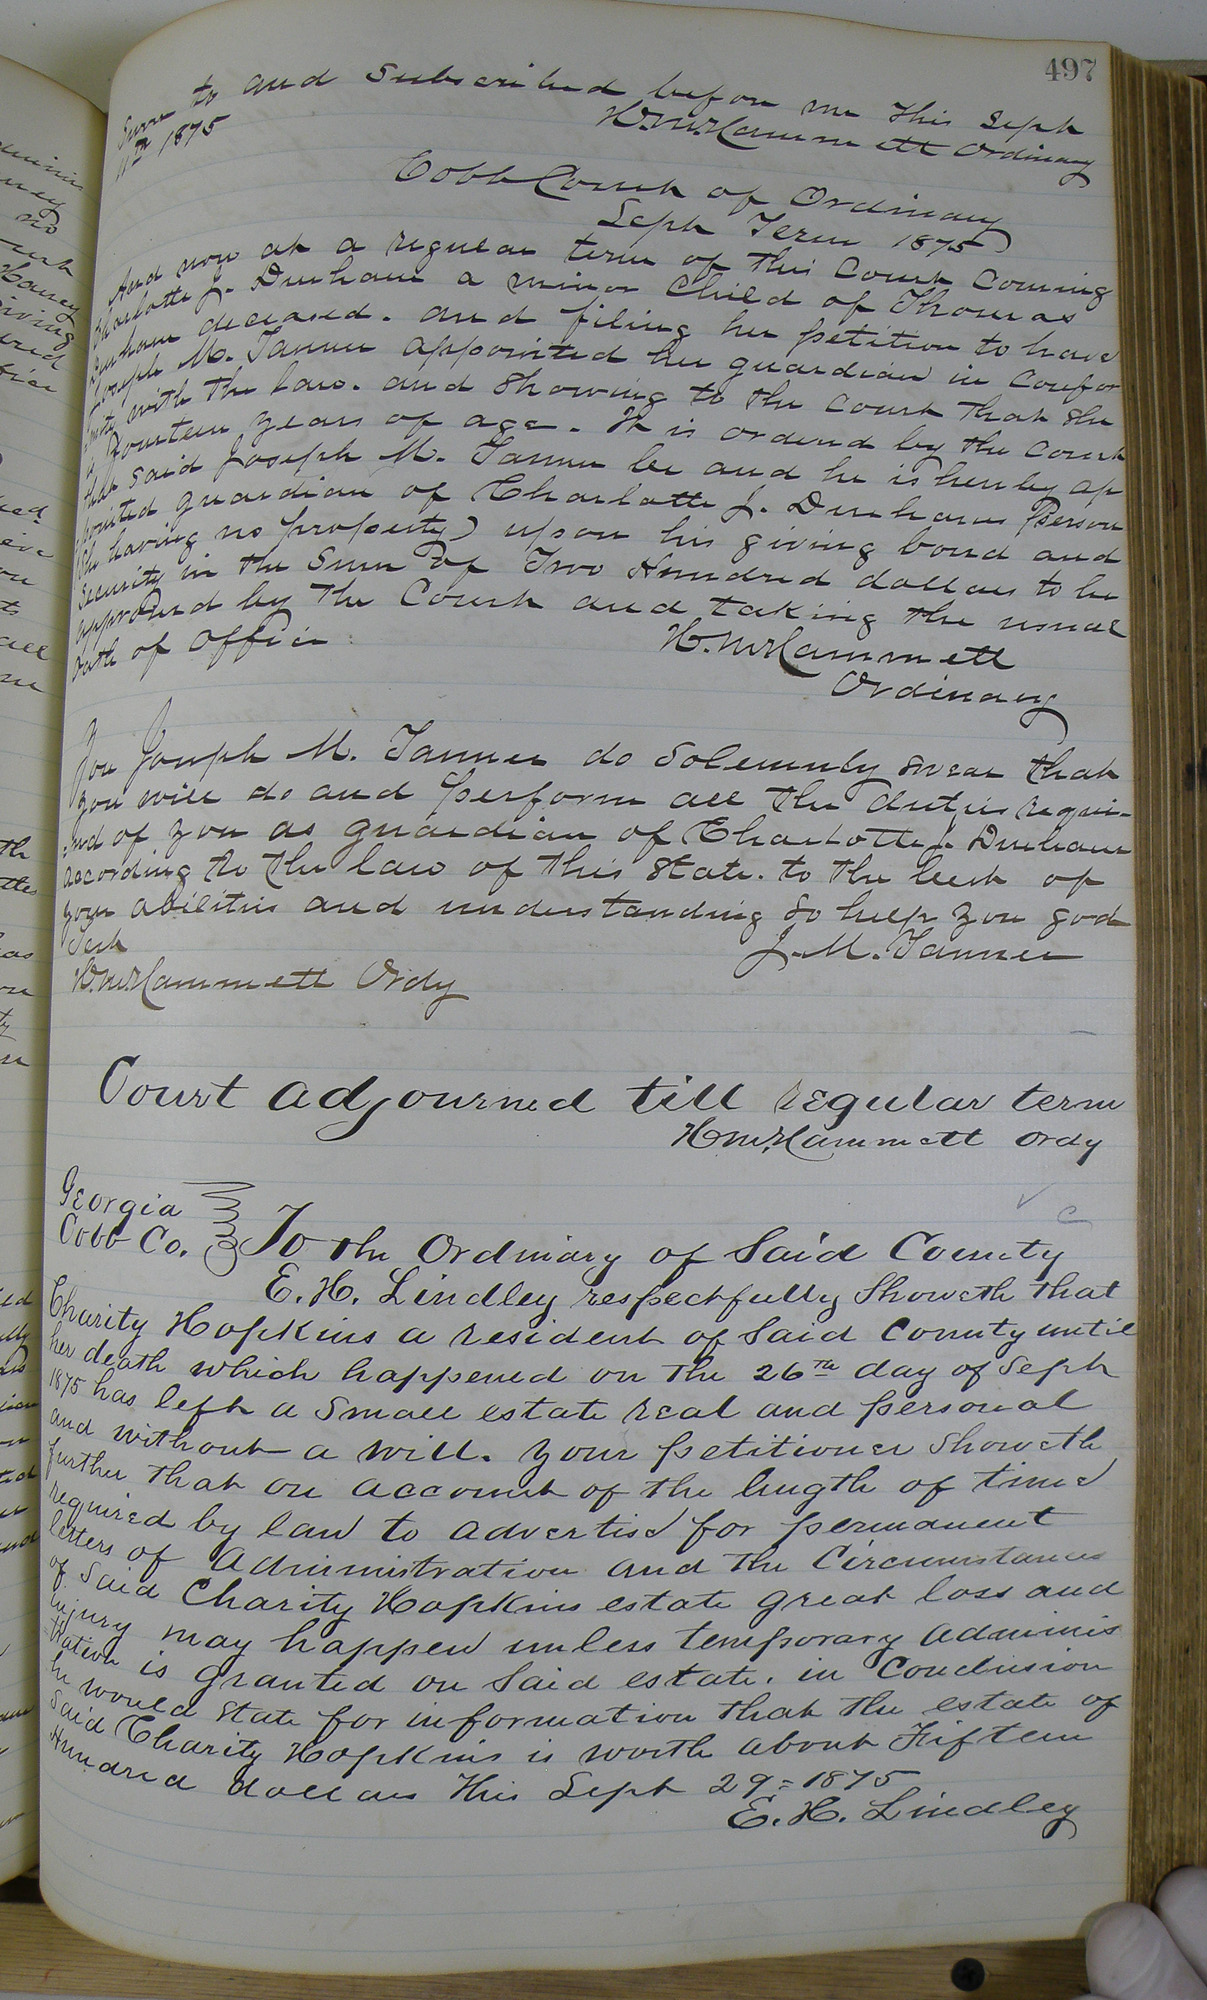 497
Sworn to and Subscribed before me this Sept
11th 1875
H. M. Hammett Ordinary
Cobb Court of Ordinary
Sept Term 1875
And now at a regular term of this Court Coming
Charlotte J. Durham a minor Child of Thomas
Durham deceased. and filing her petition to have
Joseph M. Tanner appointed her guardian in Confor
mity with the law. and Showing to the Court that She
is fourteen years of age. It is ordered by the Court
that said Joseph M. Tanner be and he is hereby ap
pointed guardian of Charlotte J. Durhams person
(She having no property) upon his giving bond and
Security in the Sum of Two Hundred dollars to be
approved by the Court and taking the usual
Oath of Office
H. M. Hammett
Ordinary
You Joseph M. Tanner do Solemnly swear that
you will do and perform all the duties requi-
red of you as guardian of Charlotte J. Durham
according to the law of this State. to the best of
your abilities and understanding So help you god
Test
J. M. Tanner
H. M. Hammett Ordy
Court adjourned till regular term
H. M. Hammett Ordy
Georgia
Cobb Co.
To the Ordinary of Said County
E. H. Lindley respectfully Showeth that
Charity Hopkins a resident of Said County until
her death which happened on the 26th day of Sept
1875 has left a Small estate real and personal
and without a will. your petitioner Showeth
further that on account of the length of time
required by law to advertise for permanent
letters of administration and the Circumstances
of Said Charity Hopkins estate great loss and
injury may happen unless temporary adminis
tration is granted on Said estate. in Conclusion
he would State for information that the estate of
Said Charity Hopkins is worth about Fifteen
Hundred dollars This Sept 29 = 1875
E. H. Lindley